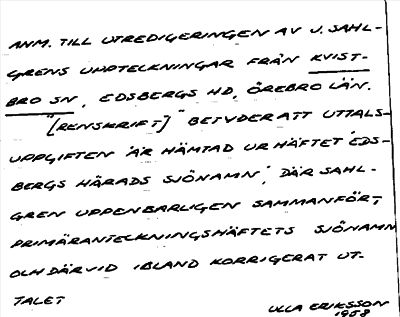 ANM. TILL UTREDIGERINGEN AV J. SAHL-
GRENS UPPTECKNINGAR FRÅN KVIST-
BRO SN, EDSBERGS HD, ÖREBRO LÄN.
"[RENSKRIFT]" BETYDER ATT UTTALS-
UPPGIFTEN ÄR HÄMTAD UR HÄFTET "EDS-
BERGS HÄRADS SJÖNAMN", DÄR SAHL-
GREN UPPENBARLIGEN SAMMANFÖRT
PRIMÄRANTECKNINGSHÄFTETS SJÖNAMN
OCH DÄRVID IBLAND KORRIGERAT UT-
TALET
ULLA ERIKSSON
1958